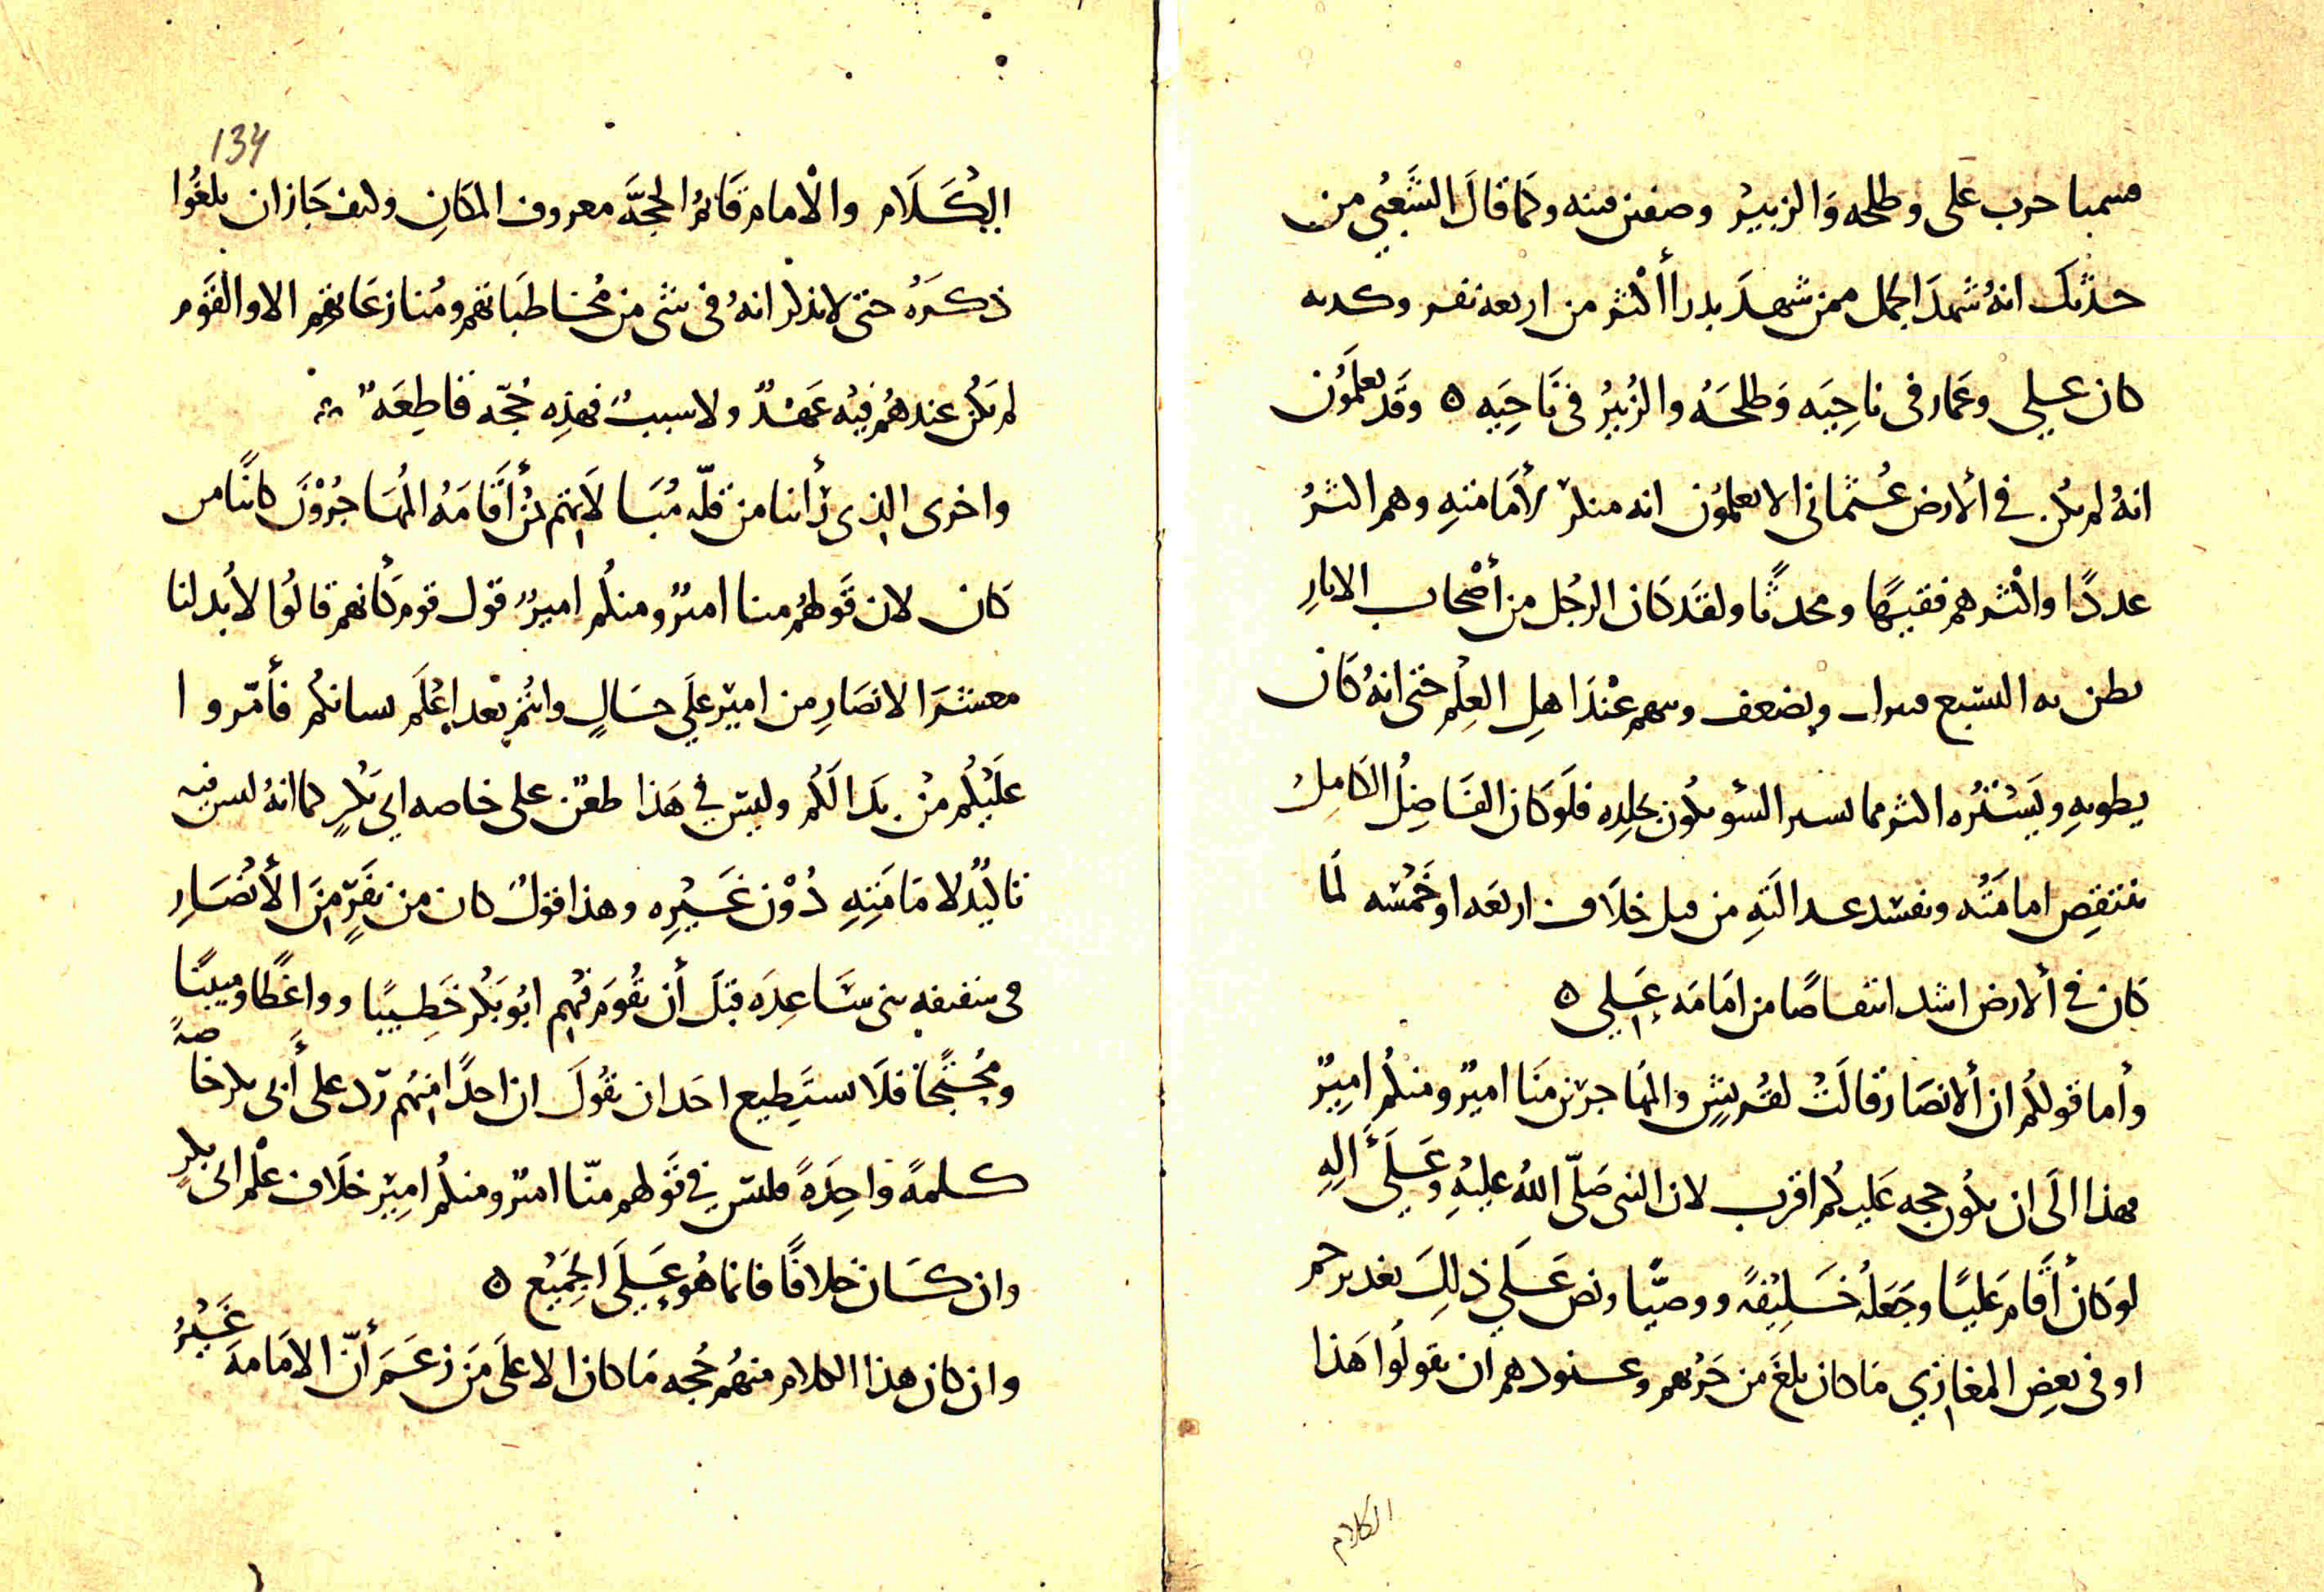 فسميا حرب على وطلحه وَالزبيرْ وصفين فتنه وكما قالَ الشَّعْبي من
حدثك انهُ شهدَ الجمل ممن شهدَ بدرا أكثر من اربعه نفر وكذبه
كان على وعَمار فى ناحِيَه وَطلحَهُ والزُبيرُ فى نَاحِيَه ه وقَد تعلمَوُن
انهُ لم يكن في الأرض عُثمانى الا تعلموُن انه منكرٌ لأمَامَتهِ وهم اكثرُ
عددًا واكثرهم فقيهًا ومحدثًا ولقَد كَان الرجُل من أصْحاب الاثارِ
يظن به التشيع فيترك ويضعف ويتهم عنْدَ اهلِ العِلْم حتى انهُ كَان
يطويهِ ويَستتُره اكثر مما يستر السّو يكُون بجلدِه فلَو كَان الفَاضِلُ الكامِلُ
تنتقِص امامَتُه وتفسد عدالَتهِ من قبل خلَاف اربعَه او خَمْسَه لَمَا
كَان في الأرض اشد انتقاصًا من امَامَه عَلي ه
وأما قولكُم ان الأنصَار قالَتْ لقُريشٍ والمُهاجرين منَا اميرٌ ومنكُم اميرٌ
فهذا الَى ان يكُون حجه عَليكُم اقرب لان النبى صَلّى اللهُ عليْهِ وَعَلَى اَلِهِ
لو كانَ أقَامَ عَليًا وجَعَلهُ خَليْفهً ووصيًّا ونص عَلي ذلِكَ بغدير خم
او فى بعضِ المغازي مَا كان بلغَ من حَرْبهم وعنودهم ان يقولُوا هَذا
الكلام
134
الكَلَام والْامام قَائمُ الحجَّه معروف المكَانِ وكيف جَاز ان يلغُوا
ذكرَهُ حتى لا يذكر انهُ فى شى من مُخاطبَاتهم ومُنازعَاتِهم الا والقَوم
لم يكُن عندهُم فيْه عَهْدٌ ولا سببٌ فهذِه حُجّه قاطِعَهٌ
واخرى الذى رأينا من قلّه مُبَالاتهِم بمنْ أقَامَهُ المُهَاجرُوْنَ كائنًا من
كَان لان قَولهُم منا اميرٌ ومنكُم اميرٌ قول قوم كأنهم قالُوا لابُد لنا
معشرَ الانصَارِ من اميْر عَلي حَالٍ وانْتُم بَعد اعْلَم بشانكُم فأمّروا
عَليْكُم منْ بَدا لَكُم وليْسَ فى هَذا طعْن على خاصه ابي بَكرٍ كما انهُ ليس فيه
تاكيْدٌ لامَامَتِهِ دُوْن غَيْرِه وهذا قولٌ كان من نفَرٍ منَ الأنْصَارِ
فى سقيفه بنى سَاعِدَه قبَلَ أن يقُومَ فيْهِم ابُو بَكْر خَطِيبًا وواعًظا ومبينًا
ومُحْتًجا فلَا يستَطِيع احَد ان يقُولَ ان احدًا منهُم رَد على أبى بكر خاصهً
كلمهً واحِدَهً فليسَ في قَولهم منّا اميْر ومنكُم امِيْر خلَاف عْلَى ابى بكرٍ
وان كَان خلافًا فانما هُو عَلَى الجَمِيْع ه
وان كان هذا الكلام منهُم حُجه مَا كان الا عَلى مَن زعَمَ أنّ الامَامهَ غَيْرُ